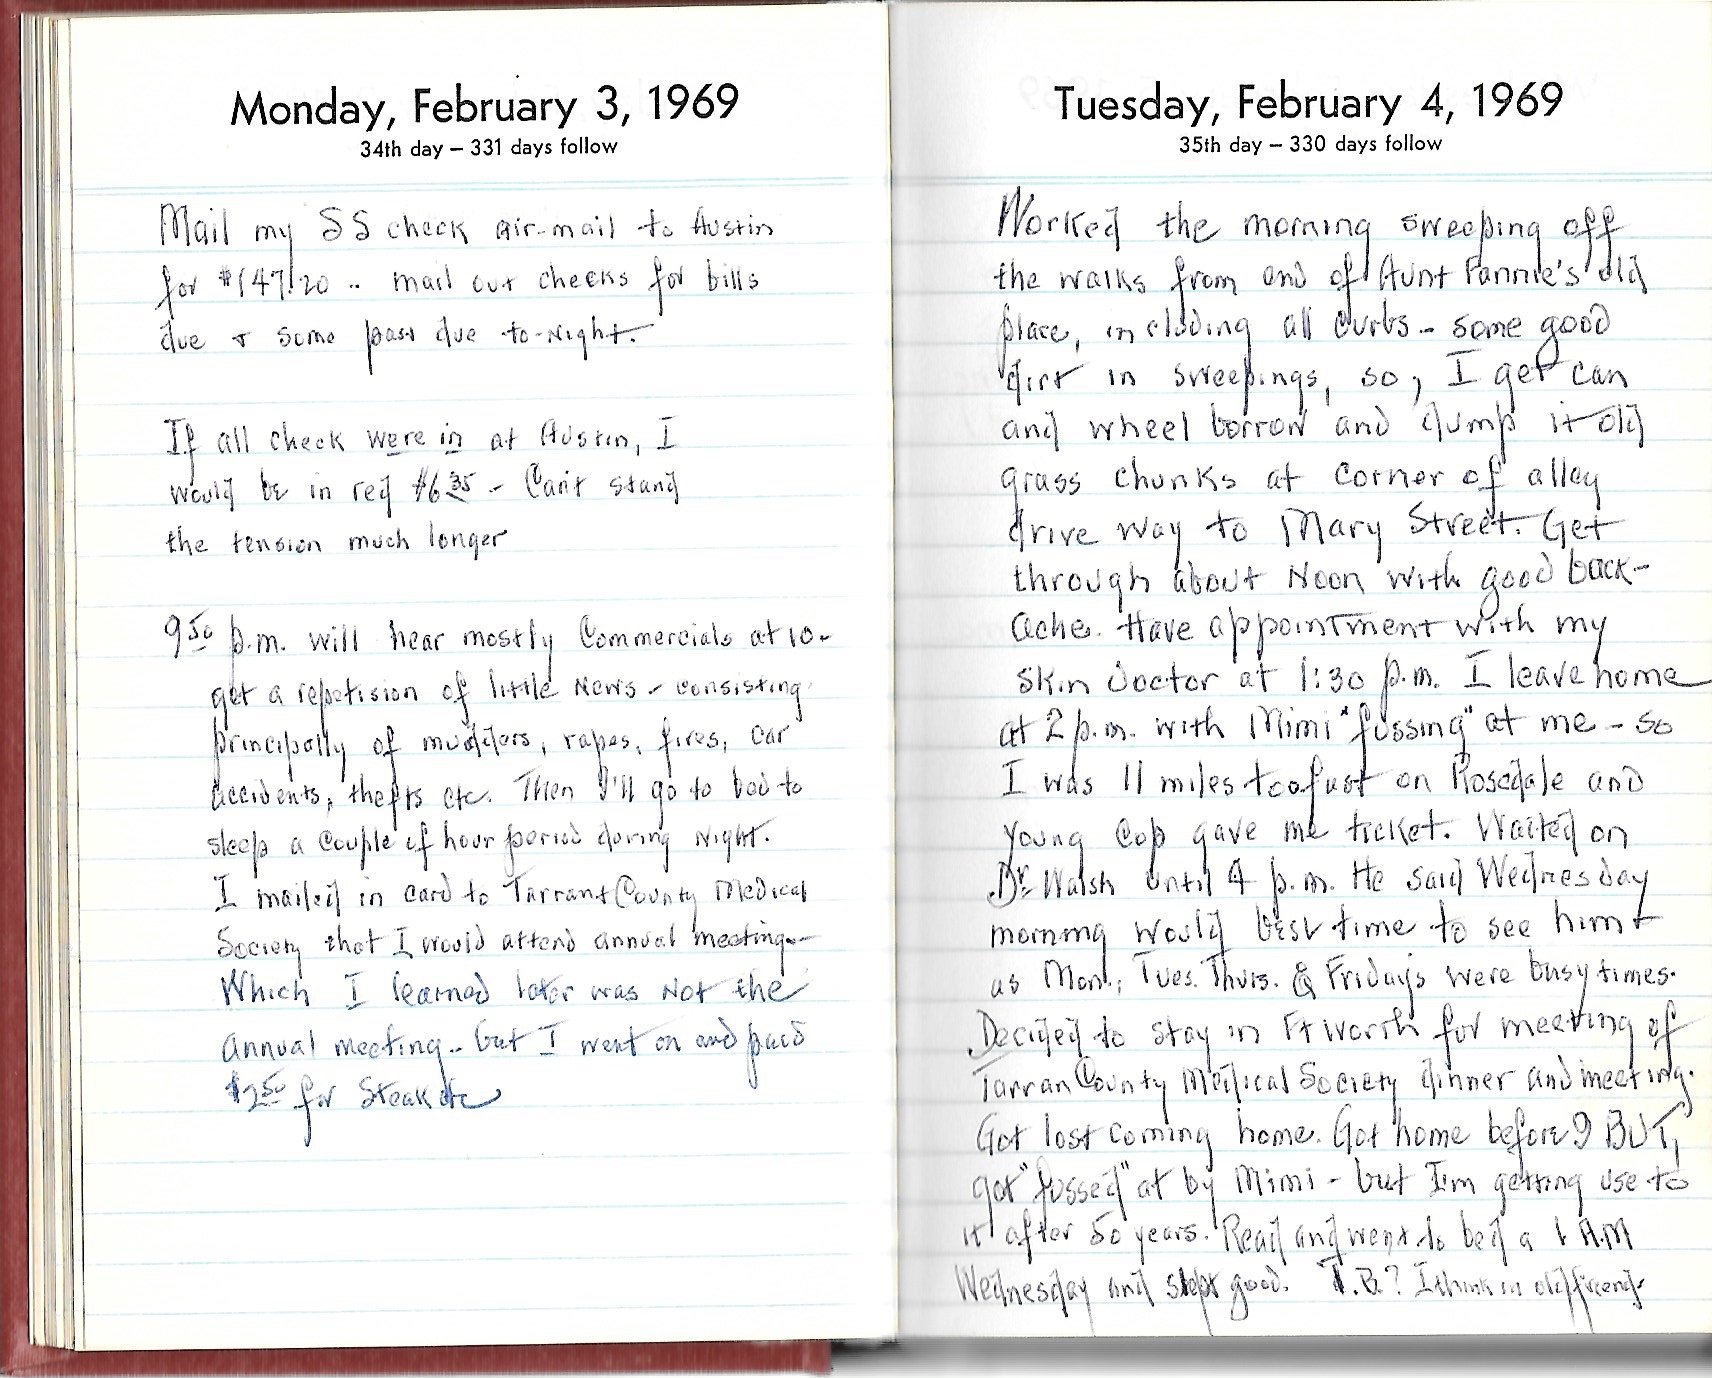 Monday, February 3, 1969
34th day – 331 days follow
Mail my SS check air-mail to Austin
for $147.20 .. mail out checks for bills
due + some past due to-night.
If all check were in at Austin, I
would be in red $6.35 - Can't stand
the tension much longer
9:50 p.m. will hear mostly Commercials at 10-
get a repetision of little News - consisting
principally of murders, rapes, fires, car
accidents, thefts etc. Then I'll go to bed to
sleep a couple of hour period during Night.
I mailed in card to Tarrant County Medical
Society that I would attend annual meeting--
Which I learned later was Not the
annual meeting.. but I went on and paid
$2.50 for Steak etc
Tuesday, February 4, 1969
35th day – 330 days follow
Worked the morning sweeping off
the walks from end of Aunt Fannie's old
place, including all curbs - some good
dirt in sweepings, so, I get can
and wheel borrow and dump it old
grass chunks at corner of alley
drive way to Mary Street. Get
through about Noon with good back-
ache. Have appointment with my
skin doctor at 1:30 p.m. I leave home
at 2 p.m. with Mimi "fussing" at me - so
I was 11 miles too fast on Rosedale and
young Cop gave me ticket. Waited on
Dr. Walsh until 4 p.m. He said Wednesday
morning would best time to see him +
as Mon., Tues. Thurs. & Fridays were busy times.
Decided to stay in Ft Worth for meeting of
Tarran County Medical Society dinner and meeting.
Got lost coming home. Got home before 9 BUT,
got "fussed" at by Mimi - but I'm getting use to
it after 50 years. Read and went to bed a 1 A.M
Wednesday and slept good. T.B.? I think in old friend-